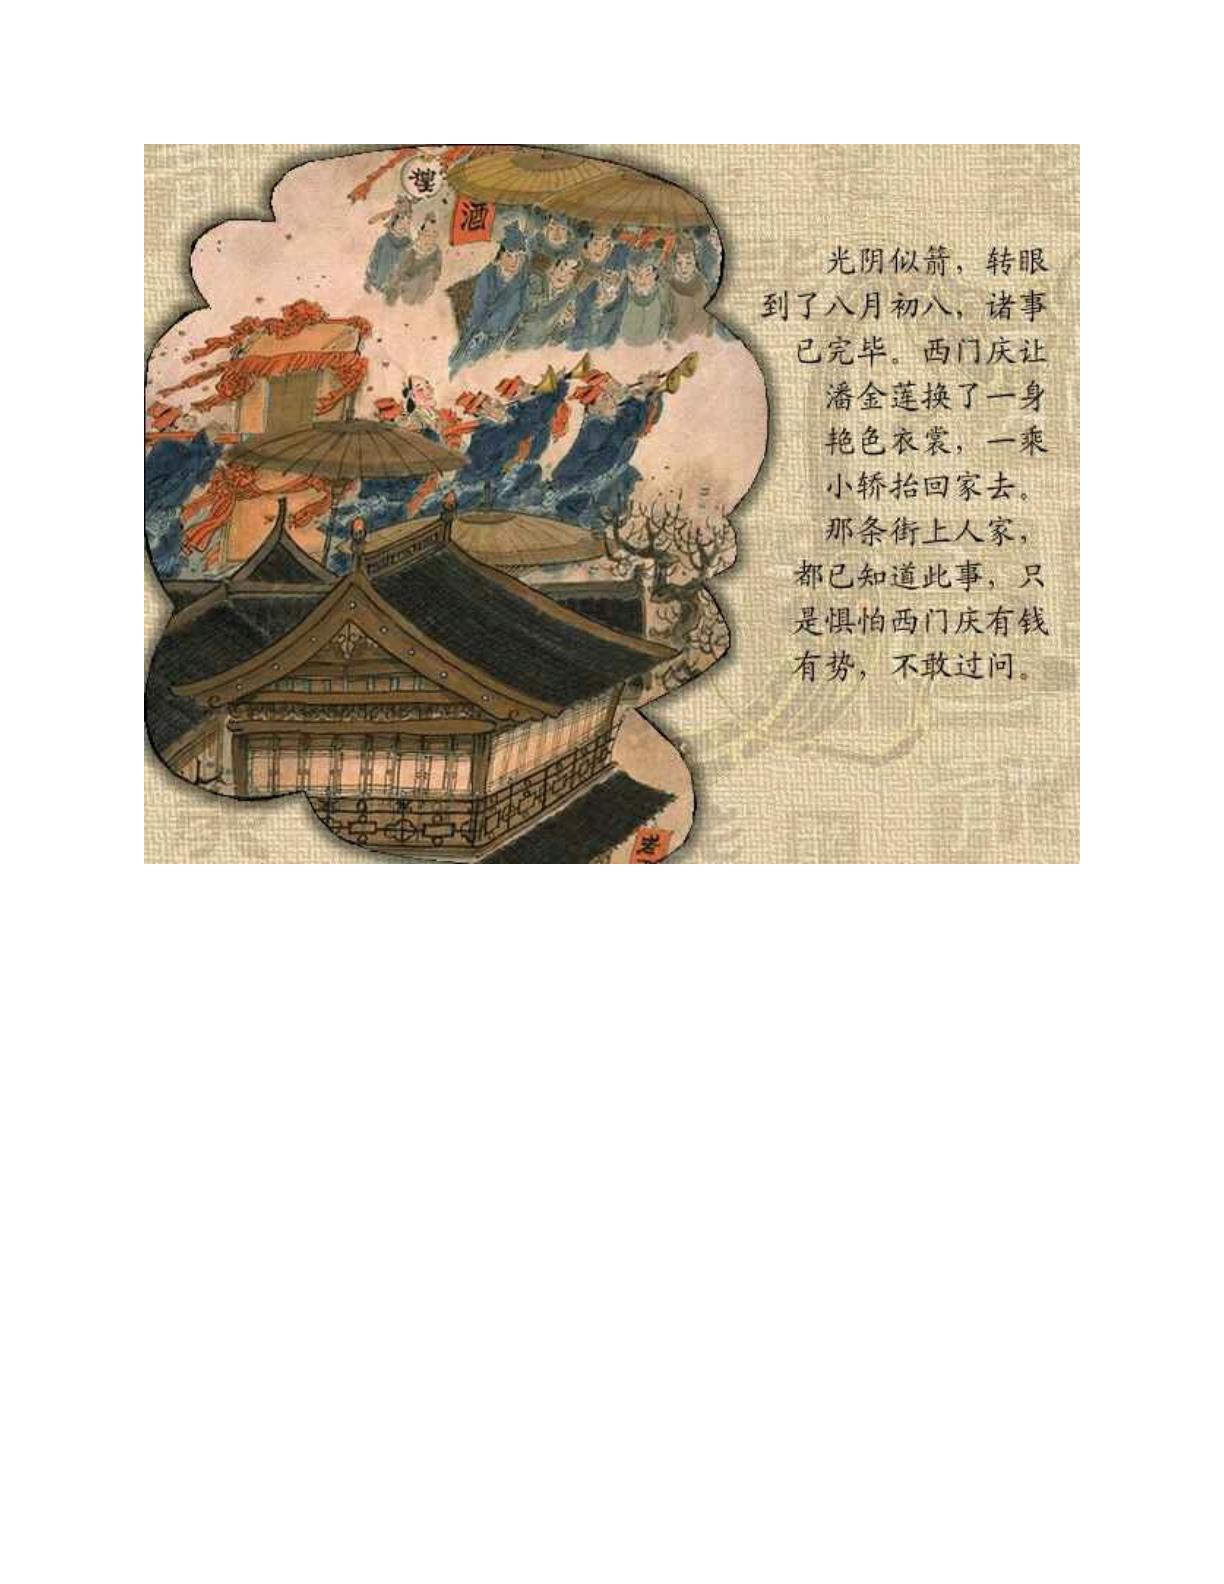 酒
光阴似箭，转眼
到了八月初八，诸事
已完毕。西门庆让
潘金莲换了一身
艳色衣裳，一乘
小轿抬回家去。
那条街上人家，
都已知道此事，只
是惧怕西门庆有钱
有势，不敢过问。